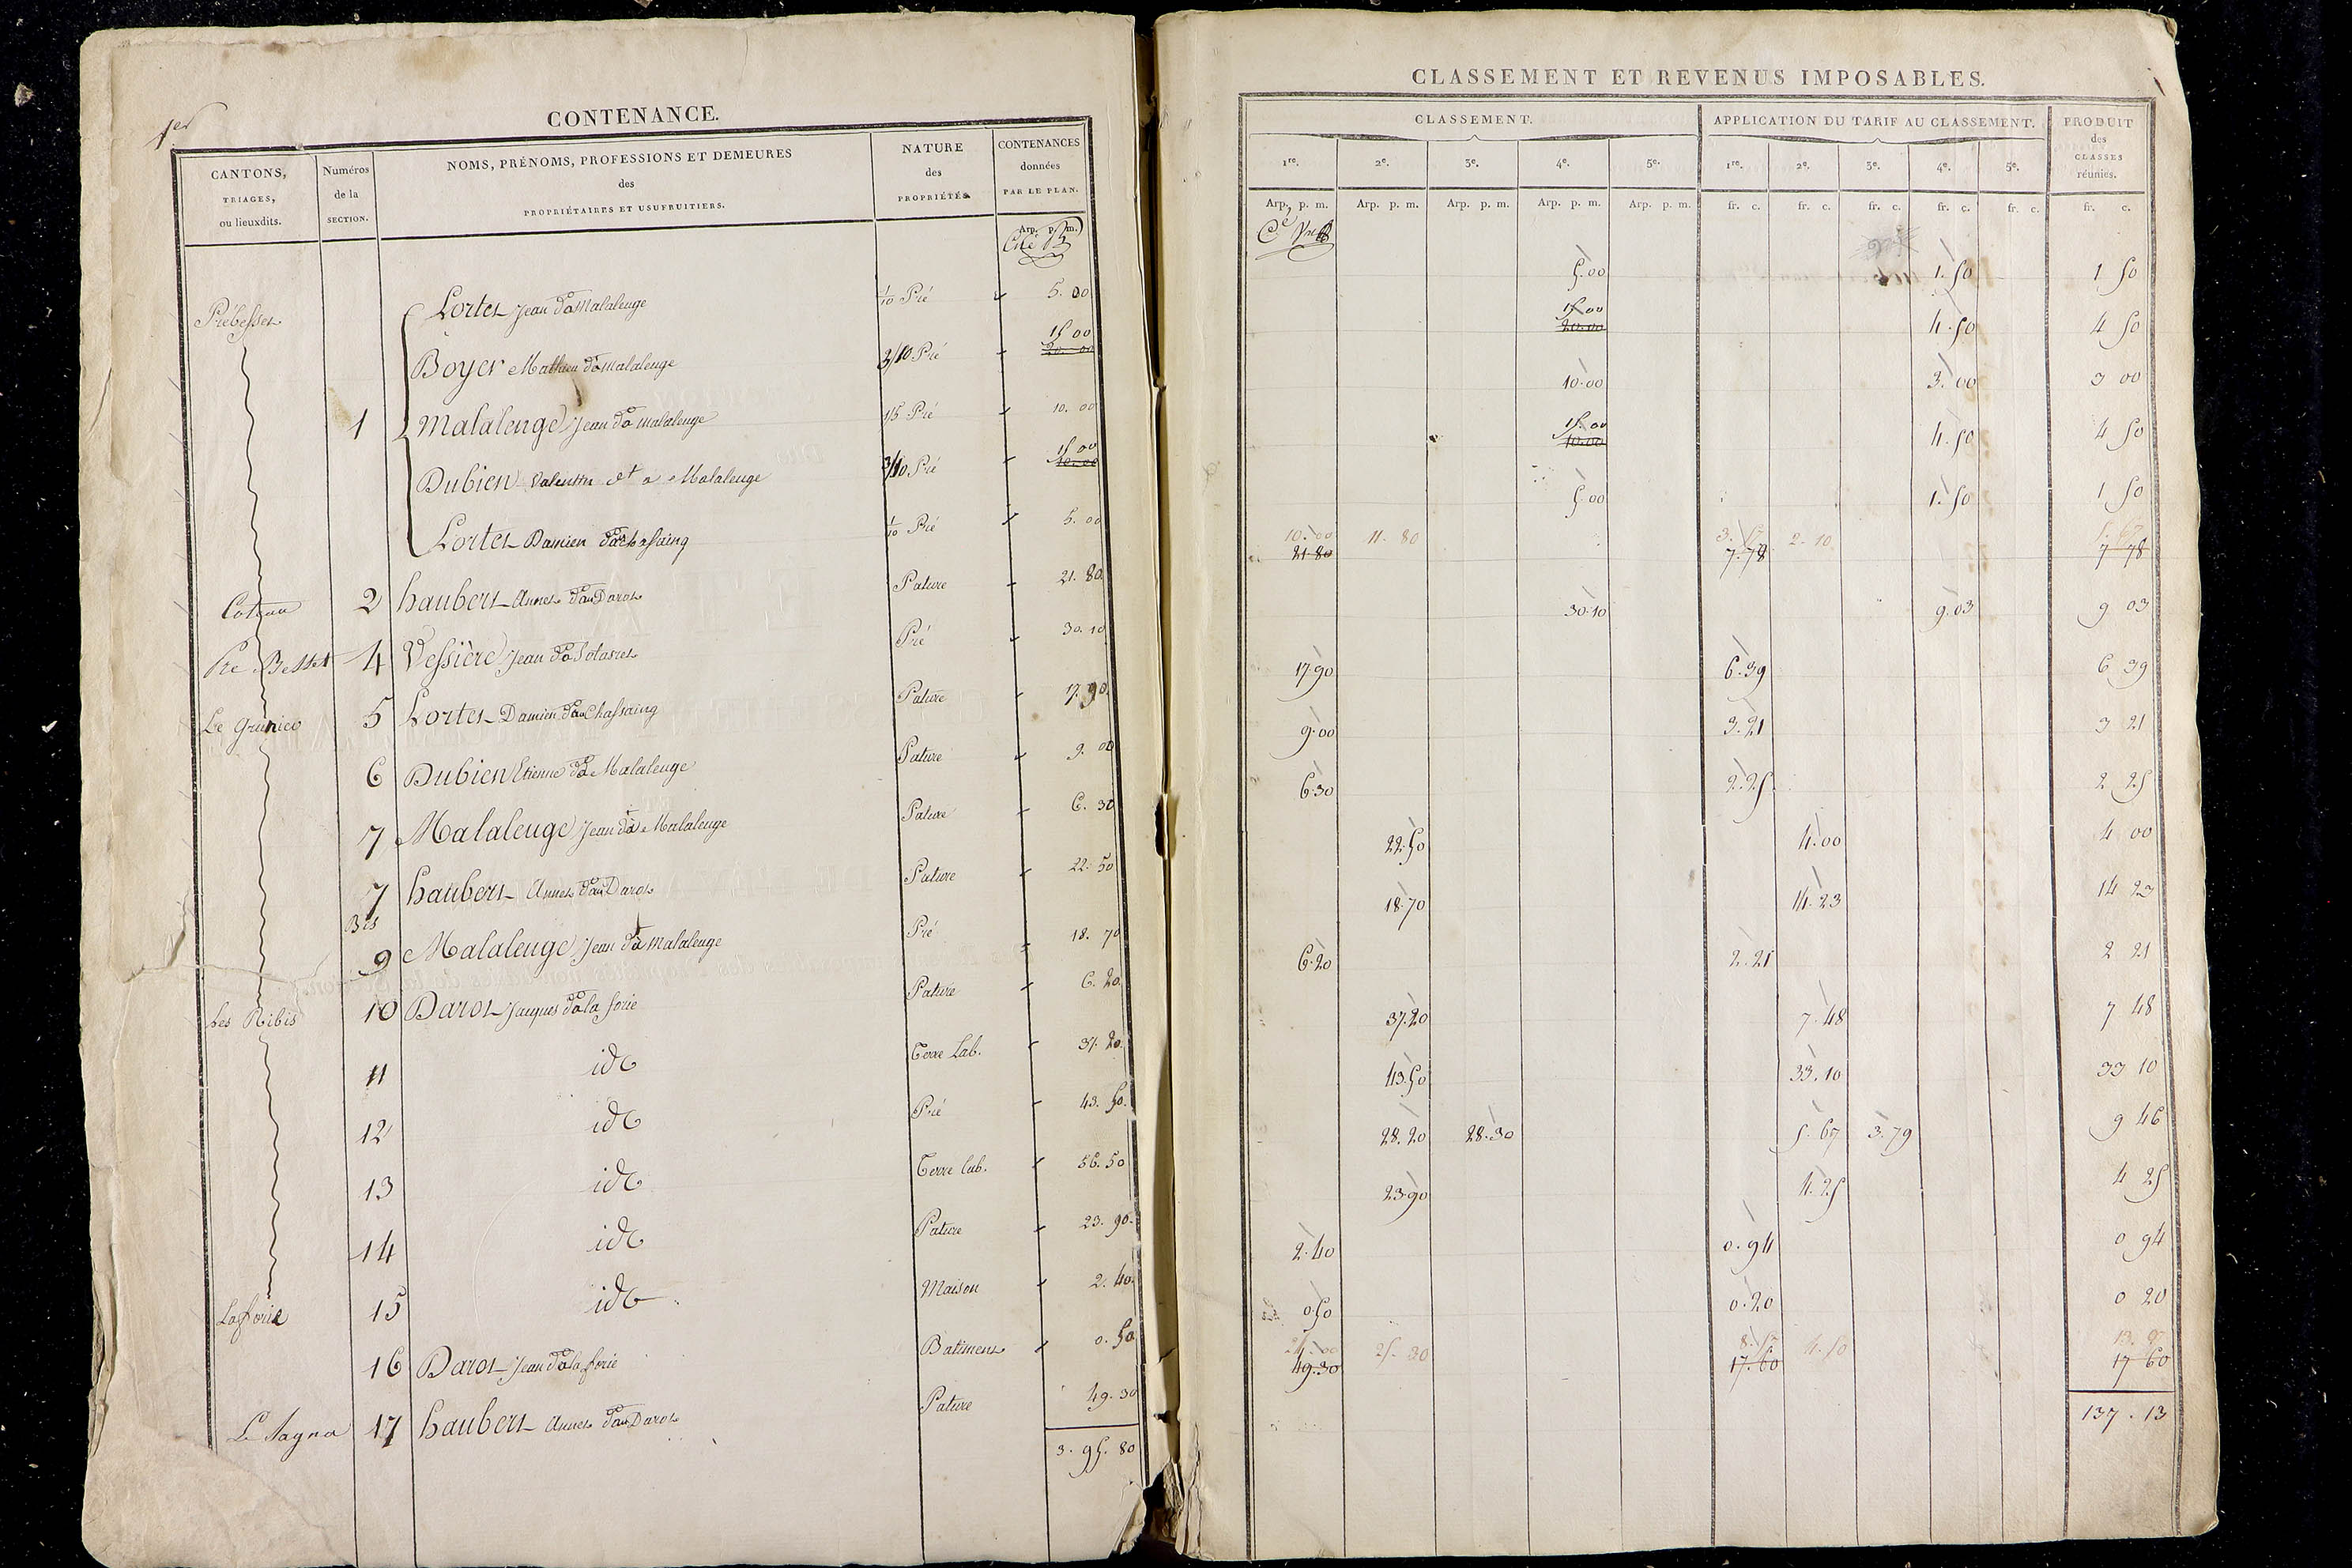 1er
CONTENANCE.
CANTONS, TRIAGES, ou lieuxdits.
Numéros de la SECTION.
NOMS, PRÉNOMS, PROFESSIONS ET DEMEURES des PROPRIÉTAIRES ET USUFRUITIERS.
NATURE des PROPRIÉTÉS
CONTENANCES données PAR LE PLAN.
Arp. p. m.
Prébesses Lortes Jean à Malaleuge 1/10 Pré 5.00
Boyer Mathieu à Malaleuge 3/10 Pré 15 00 20.00
1 Malaleuge Jean à Malaleuge 1/5 Pré 10.00
Dubien Valentin à Malaleuge 3/10 Pré 15 00 10.00
Lortes Damien à Chassaing 1/10 Pré 5.00
Coteau 2 haubert Annet Darot Pature 21.80
Pré Besset 4 Vessière Jean Pré 30.10
Le Grunier 5 Lortes Damien Chassaing Pature 17.90
6 Dubien Etienne à Malaleuge Pature 9.00
7 Malaleuge Jean à Malaleuge Pature 6.30
7 Bis haubert Annet Darot Pature 22.50
9 Malaleuge Jean à Malaleuge Pré 18.70
Les Ribis 10 Darot Jacques à la forie Pature 6.20
11 id Terre Lab. 37.20
12 id Pré 43.50
13 id Terre lab. 56.50
14 id Pature 23.90
La forie 15 id Maison 2.40
16 Darot Jean à la forie Batiment 0.50
Le Sagna 17 haubert Annet Darot Pature 49.30
3.95.80
CLASSEMENT ET REVENUS IMPOSABLES.
CLASSEMENT.
APPLICATION DU TARIF AU CLASSEMENT.
PRODUIT des CLASSES réunies.
1re. 2e. 3e. 4e. 5e. 1re. 2e. 3e. 4e. 5e.
Arp. p. m. Arp. p. m. Arp. p. m. Arp. p. m. Arp. p. m. fr. c. fr. c. fr. c. fr. c. fr. c. fr. c.
5.00 1.50 1 50
15.00
20.00 4.50 4 50
10.00 3.00 3 00
15.00
10.00 4.50 4 50
5.00 1.50 1 50
10.00 11.80 3.57 2.10 5.67
21.80 7.78 7 78
30.10 9.03 9 03
17.90 6.39 6 39
9.00 3.21 3 21
6.30 2.25 2 25
22.50 4.00 4 00
18.70 14.23 14 23
6.20 2.21 2 21
37.20 7.48 7 48
43.50 33.10 33 10
28.20 28.30 5.67 3.79 9 46
23.90 4.25 4 25
2.40 0.94 0 94
0.50 0.20 0 20
25.30 4.50
49.30 17.60 17 60
137.13